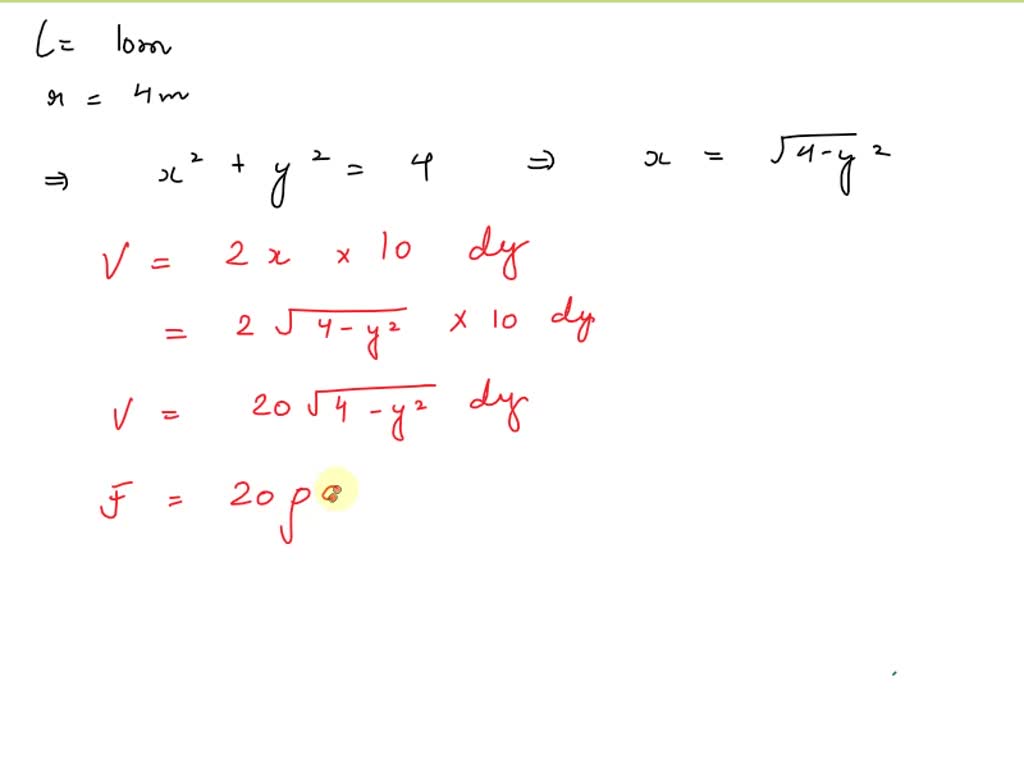 L = 10m
r = 4m
⇒ x² + y² = 4 ⇒ x = √4-y²
V = 2x × 10 dy
= 2√4-y² × 10 dy
V = 20√4-y² dy
F = 20ρ